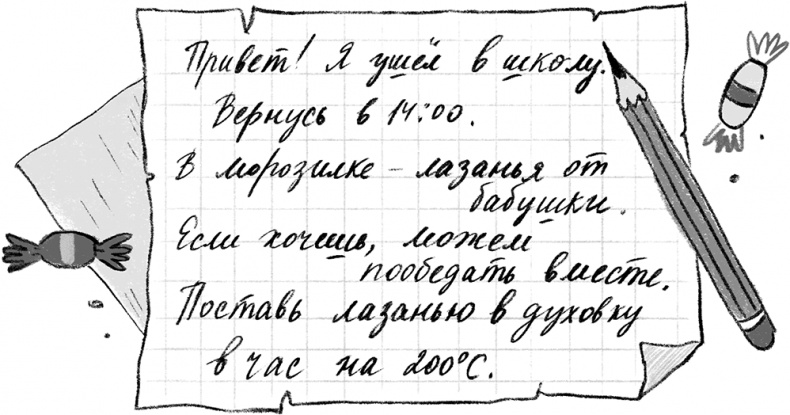 Привет! Я ушёл в школу.
Вернусь в 14:00.
В морозилке – лазанья от
бабушки.
Если хочешь, можем
пообедать вместе.
Поставь лазанью в духовку
в час на 200°С.